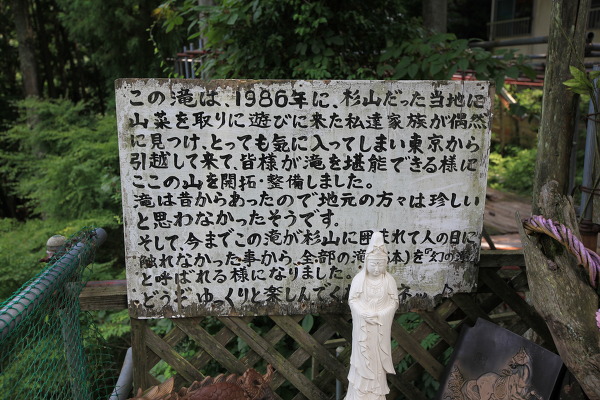 この滝は、1986年に、杉山だった当地に
山菜を取りに遊びに来た私達家族が偶然
に見つけ、とっても気に入ってしまい東京から
引越して来て、皆様が滝を堪能できる様に
ここの山を開拓・整備しました。
滝は昔からあったので地元の方々は珍しい
と思わなかったそうです。
そして、今までこの滝が杉山に囲まれて人の目に
触れなかった事から、全部の滝 体)を"幻の滝"
と呼ばれる様になりました。
どうぞ、ゆっくりと楽しんでく